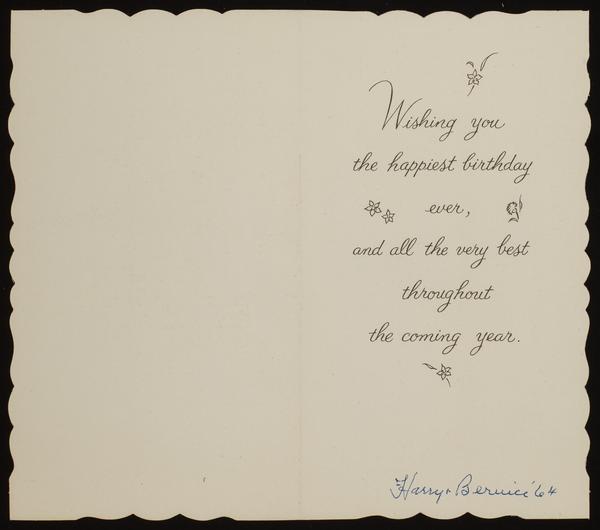 Wishing you
the happiest birthday
ever,
and all the very best
throughout
the coming year.
Harry + Bernice '64